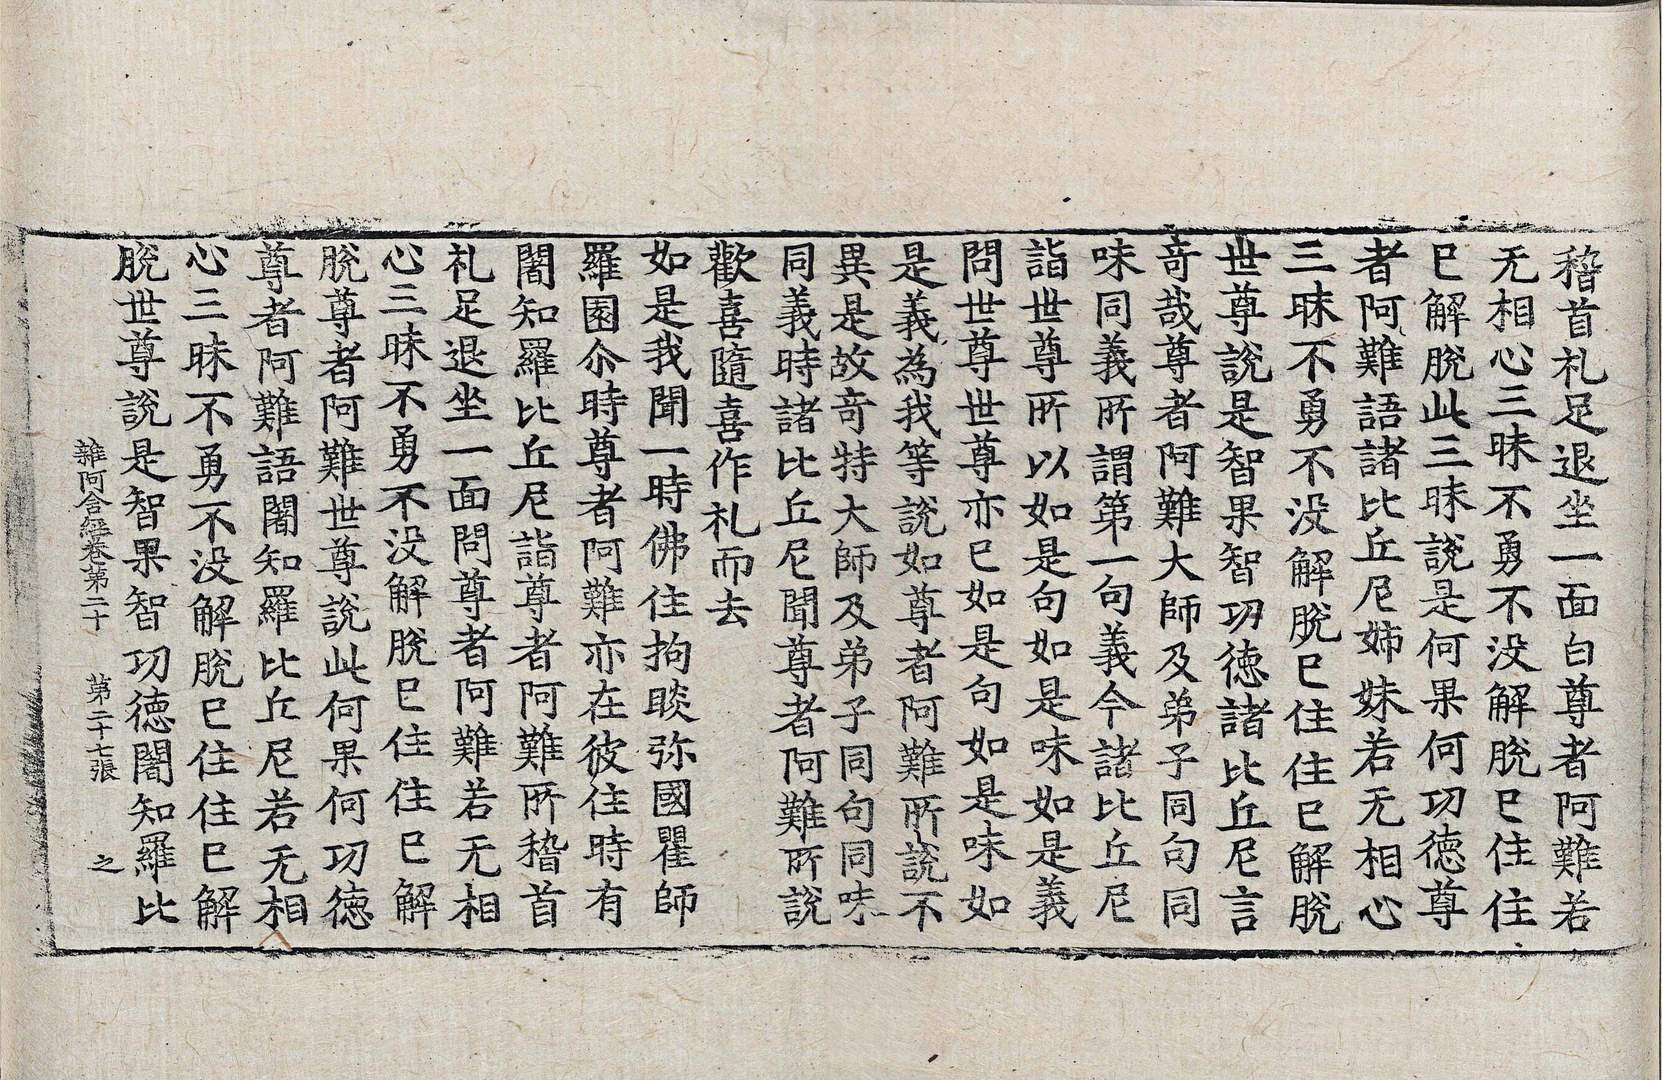 稽首礼足退坐一面白尊者阿難若
无相心三昧不勇不没解脫已住住
已解脫此三昧說是何果何功德尊
者阿難語諸比丘尼姉妹若无相心
三昧不勇不没解脫已住住已解脫
世尊說是智果智功德諸比丘尼言
竒哉尊者阿難大師及弟子同句同
味同義所謂第一句義今諸比丘尼
詣世尊所以如是句如是味如是義
問世尊世尊亦已如是句如是味如
是義為我等說如尊者阿難所說不
異是故竒特大師及弟子同句同味
同義時諸比丘尼聞尊者阿難所說
歡喜隨喜作礼而去
如是我聞一時佛住拘睒弥國瞿師
羅園尒時尊者阿難亦在彼住時有
闍知羅比丘尼詣尊者阿難所稽首
礼足退坐一面問尊者阿難若无相
心三昧不勇不没解脫已住住已解
脫尊者阿難世尊說此何果何功德
尊者阿難語闍知羅比丘尼若无相
心三昧不勇不没解脫已住住已解
脫世尊說是智果智功德闍知羅比
雜阿含經卷第二十 第二十七張 之